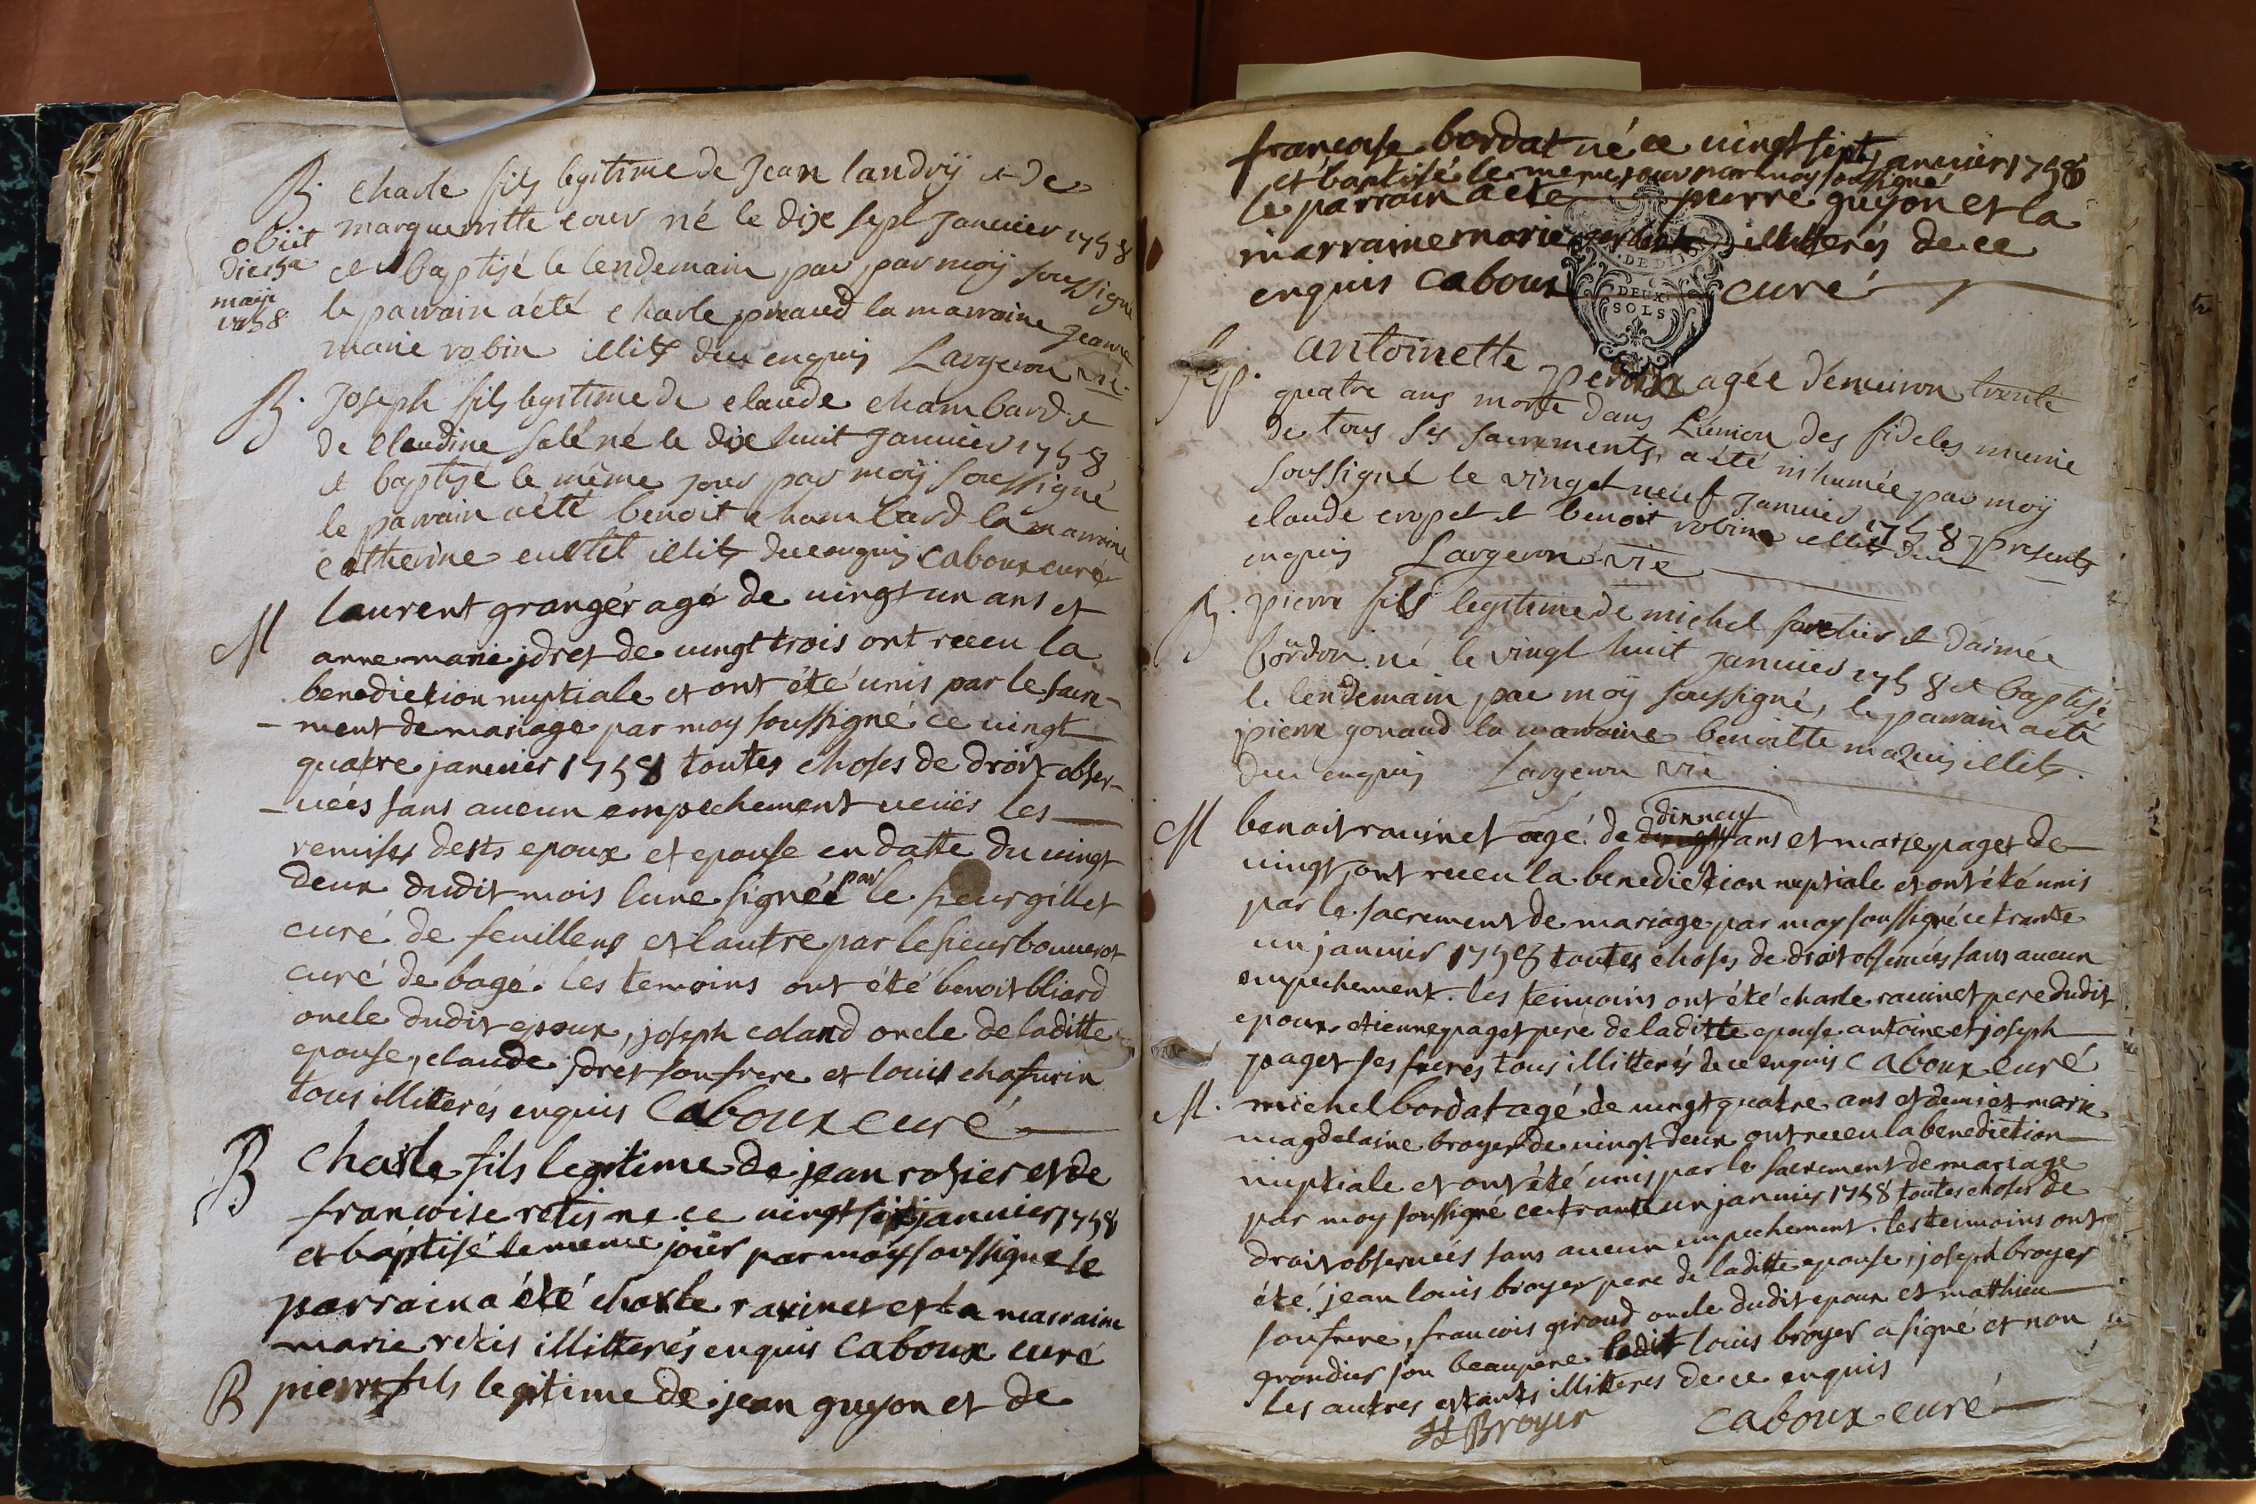 B. Charle fils legitime de Jean landrÿ et de
margueritte cour né le dix sept Janvier 1758
obiit
die 5a
maji
1758
et baptisé le lendemain par par moÿ soussigné
le parrain a été charle praud la marraine jeanne
marie robin illits de ce enquis Largeron vic.
B. Joseph fils legitime de claude chambard et
de claudine salé né le dix huit Janvier 1758
et baptisé le même jour par moÿ soussigné
le parrain a été benoit chambard la marraine
catherine illits de ce enquis caboux curé
M laurent granger agé de vingt un ans et
anne marie jdret de vingt trois ont receu la
benediction nuptiale et ont été unis par le sacre-
-ment de mariage par moy soussigné ce vingt
quatre janvier 1758 toutes choses de droit obser-
-vées sans aucun empechement veües les
remises desds epoux et epouse en datte du vingt
deux dudit mois lune signée par le sieur gillet
curé de feuillens et lautre par le sieur bonnerot
curé de bagé. les temoins ont été benoit bliard
oncle dudit epoux, joseph coland oncle de laditte
epouse, claude jdret son frere et louis chafurin
tous illiterés enquis Caboux curé
B Charle fils legitime de jean rosier et de
francoise retis né ce vingt sixt janvier 1758
et baptisé le meme jour par moy soussigné le
parrain a été charle ravinet et la marraine
marie retis illitterés enquis Caboux curé
B pierre fils legitime de jean guyon et de
francoise bordat né ce vingt sept janvier 1758
et baptisé le meme jour par moy soussigné
le parrain a eté pierre guyon et la
marraine marie illitterés de ce
enquis Caboux curé
DE DIJON
DEUX
SOLS
Sep. antoinette perdrix agée d'environ trente
quatre ans morte dans L'union des fideles munie
de tous ses sacrements, a été inhumée par moÿ
soussigné le vinget neuf Janvier 1758 presents
claude cropet et benoit robin illits de ce
enquis Largeron vic
B. pierre fils legitime de michel sorlier et d'aimée
bourdon né le vingt huit janvier 1758 et baptisé
le lendemain par moÿ soussigné, le parrain a été
pierre gonaud la marraine benoitte mazuis illits.
de ce enquis Largeron vic
dinneuf
M benoit ravinet agé de ans et marie paget de
vingt, ont receu la benediction nuptiale et ont été unis
par le sacrement de mariage par moy soussigné ce trante
un janvier 1758 toutes choses de droit observées sans aucun
empechement. les temoins ont été charle ravinet pere dudit
epoux, etienne paget pere de laditte epouse antoine et joseph
paget ses freres tous illitterés de ce enquis Caboux curé
M. michel bordat agé de vingt quatre ans et demi et marie
magdelaine broyer de vingt deux ont receu la benediction
nuptiale et ont été unis par le sacrement de mariage
par moy soussigné ce trante un janvier 1758 toutes choses de
droit observées sans aucun empechement. les temoins ont
été jean louis broyer pere de laditte epouse, joseph broyer
son frere, francois giroud oncle dudit epoux et mathieu
grandier son beaupere ledit louis broyer a signé et non
les autres estants illitteres de ce enquis
Broyer Caboux curé